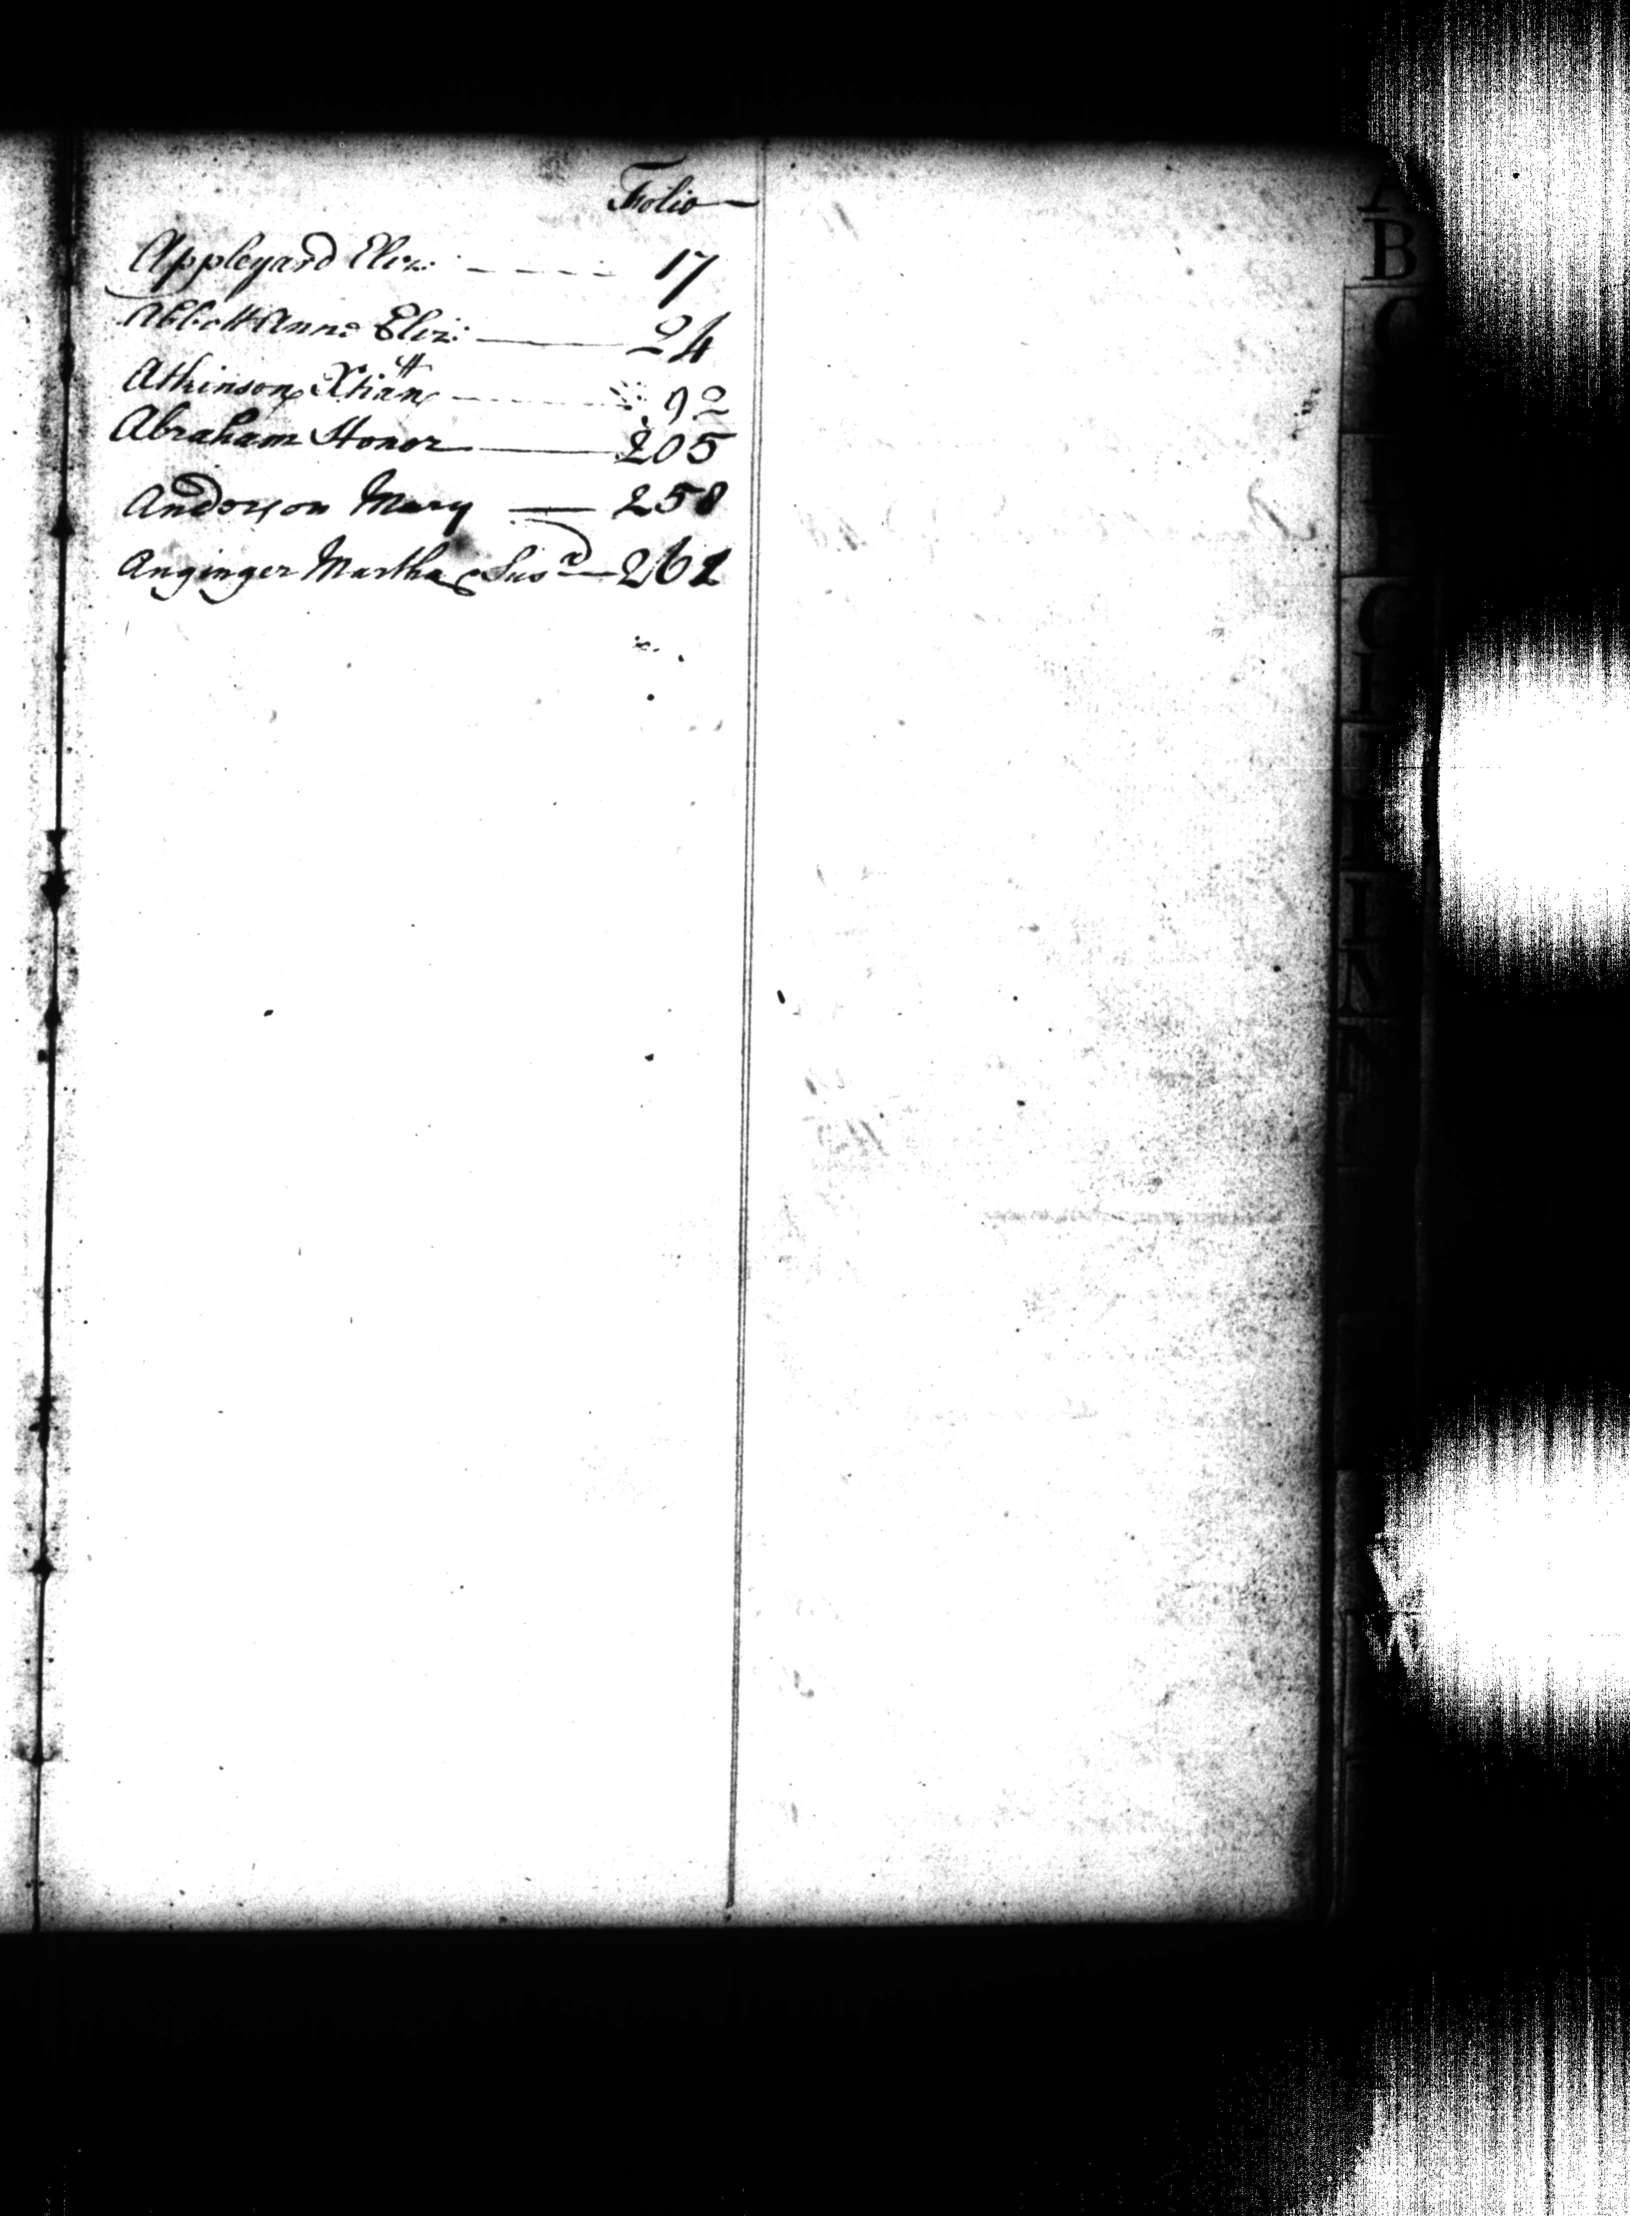 Folio
Appleyard Eliz: 17
Abbott Anne Eliz: 24
Atkinson Xtian 92
Abraham Honor 205
Anderson Mary 258
Anginger Martha Sus^a 261
A
B
C